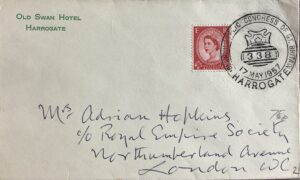 OLD SWAN HOTEL
HARROGATE
CONGRESS OF GT BRITAIN
338
17 MAY 1957
HARROGATE
Mrs Adrian Hopkins
c/o Royal Empire Society
Northumberland Avenue
London WC2